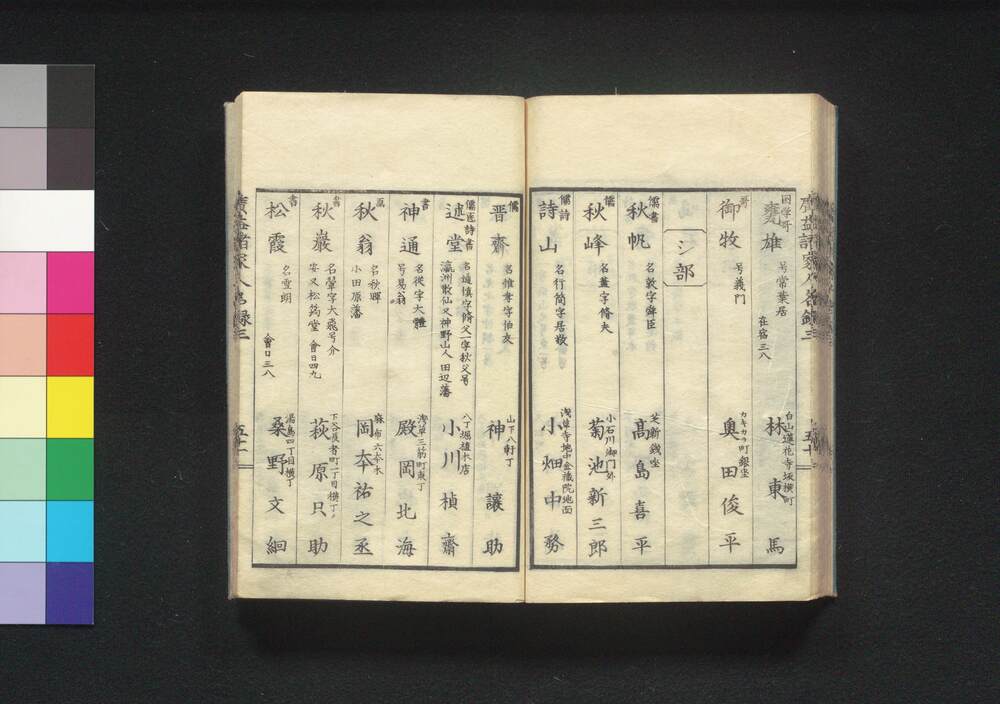 国学哥
甕雄
号常葉居
在宿三八
白山蓮花寺坂横町
林東馬
哥
御牧
号義門
カキカラ町銀座
奥田俊平
シ部
儒書
秋帆
名敦字舜臣
芝新銭座
高島喜平
儒
秋峰
小石川御門外
菊池新三郎
儒詩
詩山
名行簡字居敬
浅草寺地中金蔵院地面
小畑中務
儒
晋齋
山下八軒丁
神讓助
儒医詩書
述堂
瀛洲散仙又神野山人 田辺藩
八丁堀植木店
小川楨齋
書
神通
名従字大軆
号易翁
浅草三筋町東丁
殿岡北海
画
秋翁
名秋暉
小田原藩
麻布六本木
岡本祐之丞
書
秋巌
名鞏字大飛号介
安又松筠堂 會日四九
下谷長者町一丁目横丁
萩原只助
書
松霞
名重明
會日三八
湯島四丁目横丁
桑野文細
廣益諸家人名録三
五十
廣益諸家人名録三
五十一